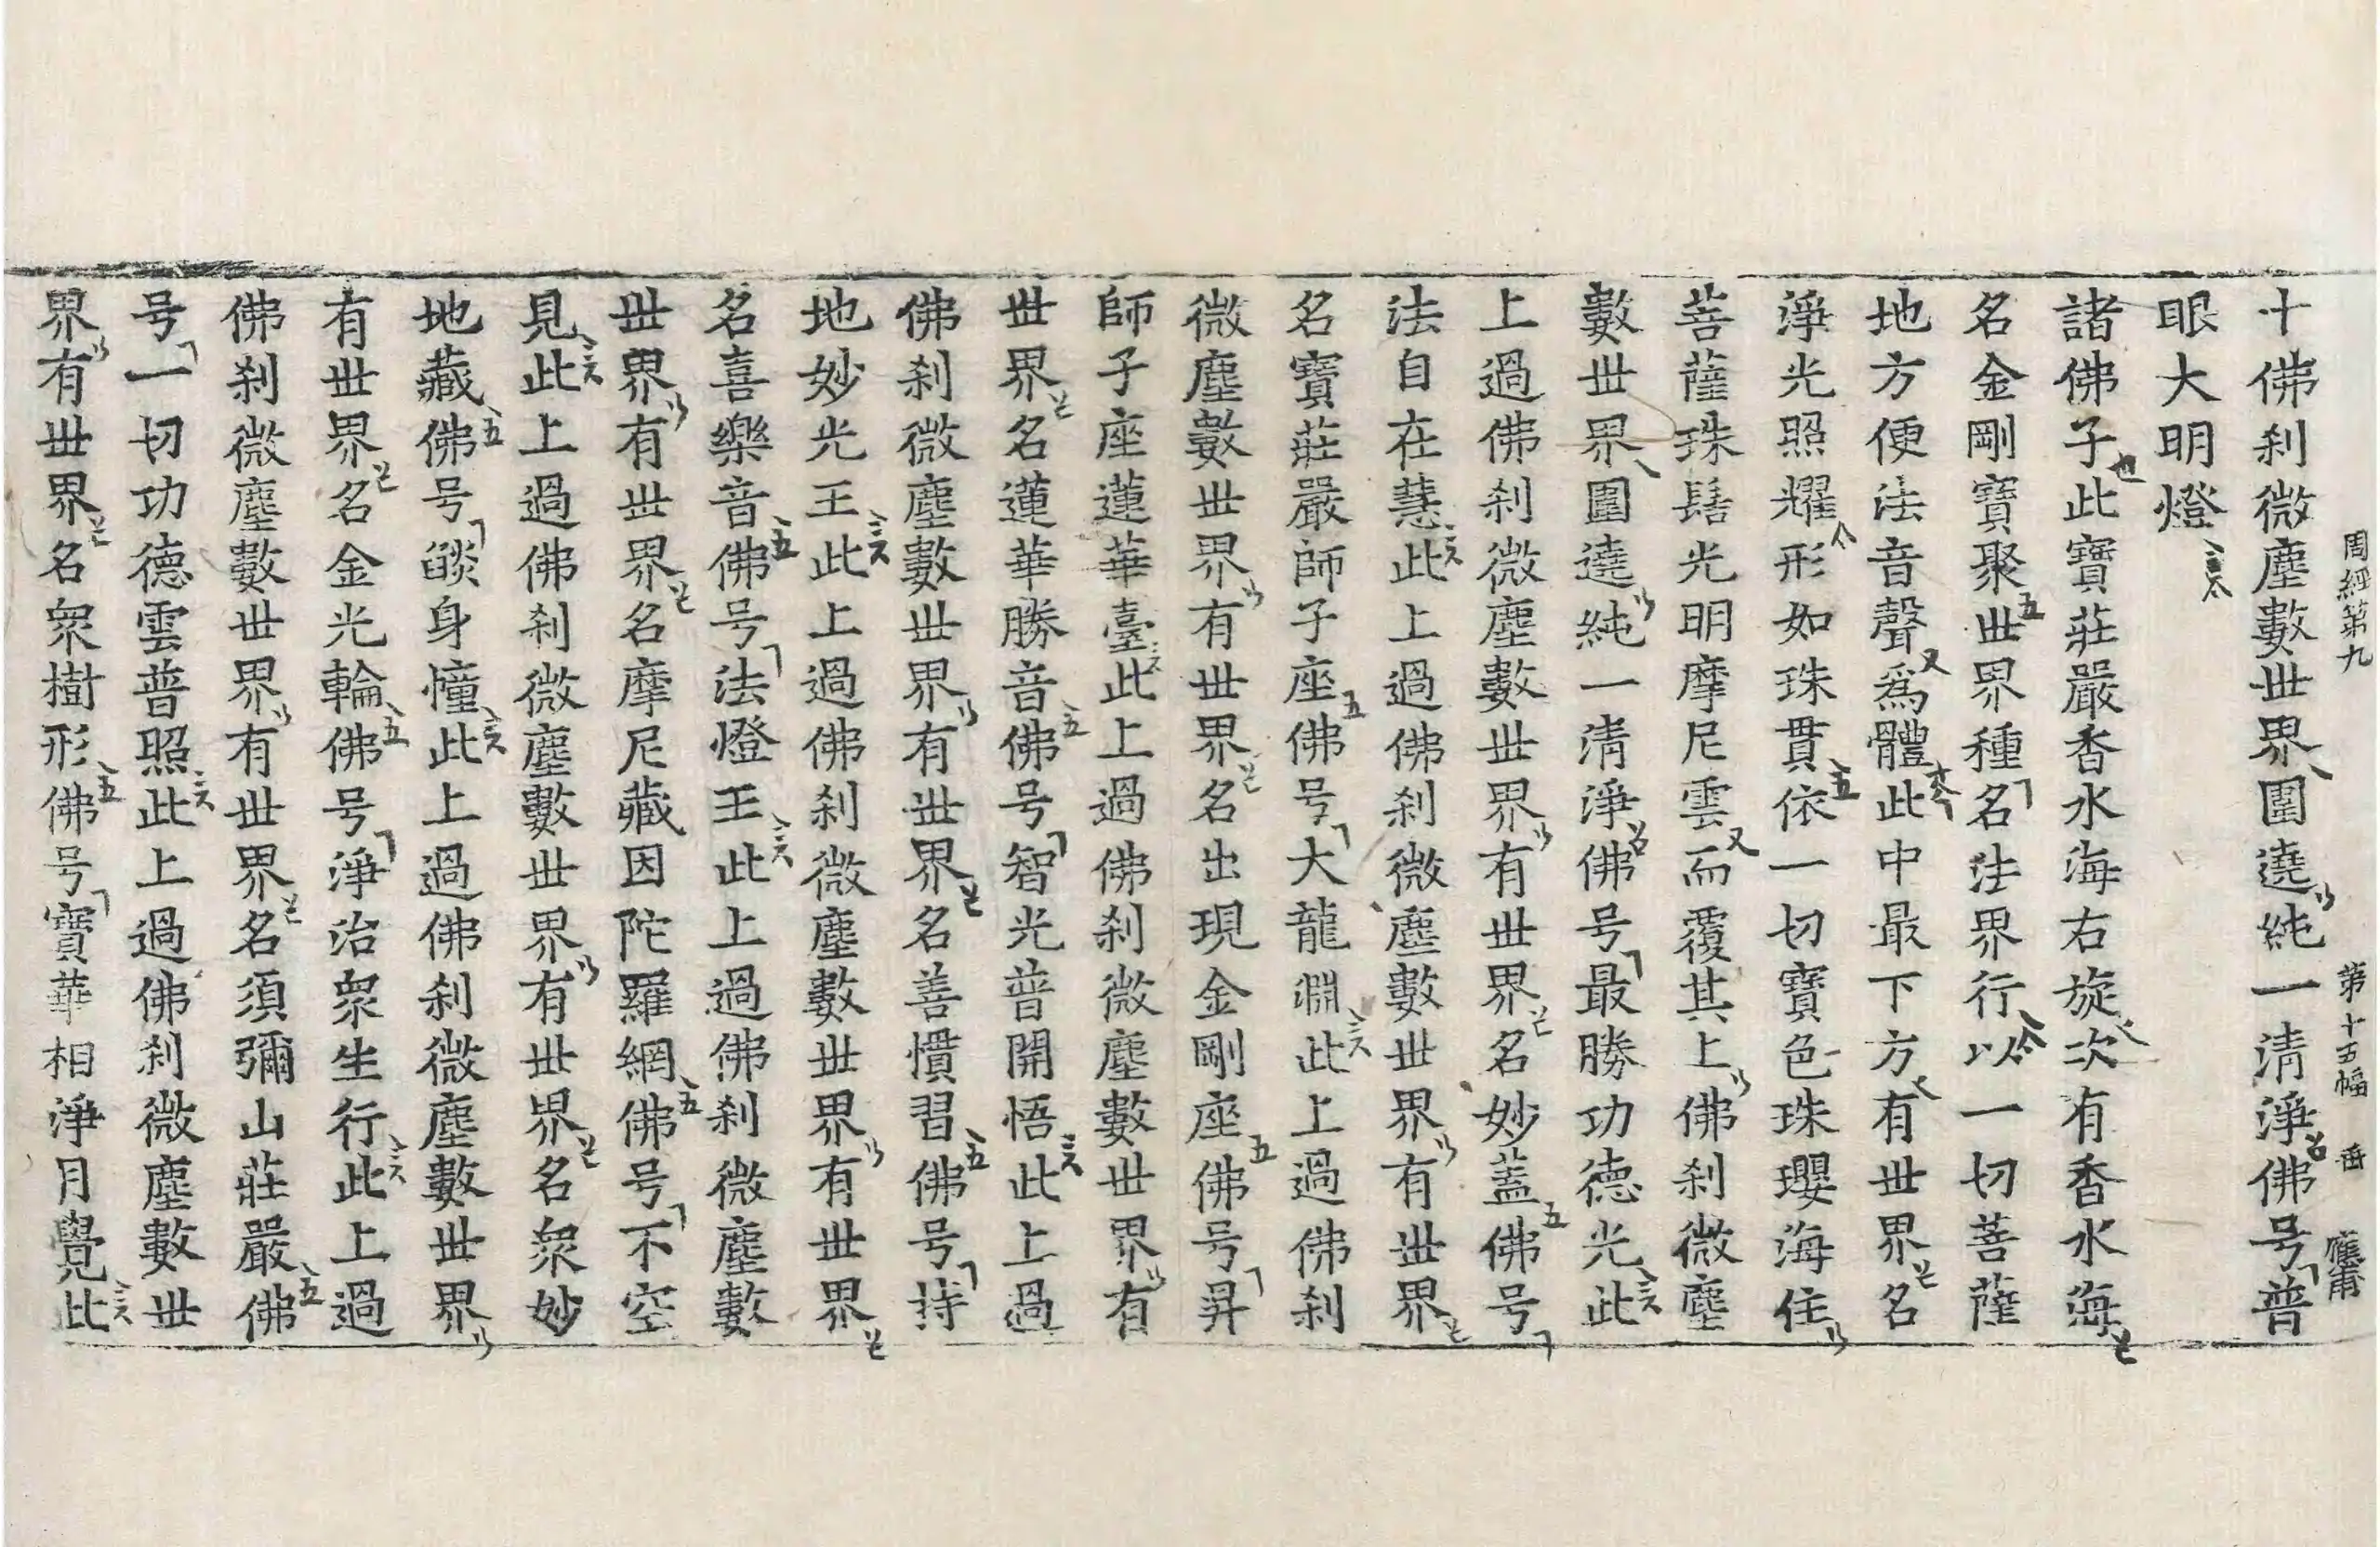 周經第九 第十五幅 應甫
十佛刹微塵數世界圍遶純一清淨佛号普
眼大明燈
諸佛子此寶莊嚴香水海右旋次有香水海
名金剛寶聚世界種名法界行以一切菩薩
地方便法音聲爲體此中最下方有世界名
淨光照耀形如珠貫依一切寶色珠瓔海住
菩薩珠髻光明摩尼雲而覆其上佛刹微塵
數世界圍遶純一清淨佛号最勝功德光此
上過佛刹微塵數世界有世界名妙蓋佛号
法自在慧此上過佛刹微塵數世界有世界
名寶莊嚴師子座佛号大龍淵此上過佛刹
微塵數世界有世界名出現金剛座佛号昇
師子座蓮華臺此上過佛刹微塵數世界有
世界名蓮華勝音佛号智光普開悟此上過
佛刹微塵數世界有世界名善慣習佛号持
地妙光王此上過佛刹微塵數世界有世界
名喜樂音佛号法燈王此上過佛刹微塵數
世界有世界名摩尼藏因陀羅網佛号不空
見此上過佛刹微塵數世界有世界名衆妙
地藏佛号燄身幢此上過佛刹微塵數世界
有世界名金光輪佛号淨治衆生行此上過
佛刹微塵數世界有世界名須彌山莊嚴佛
号一切功德雲普照此上過佛刹微塵數世
界有世界名衆樹形佛号寶華相淨月覺此